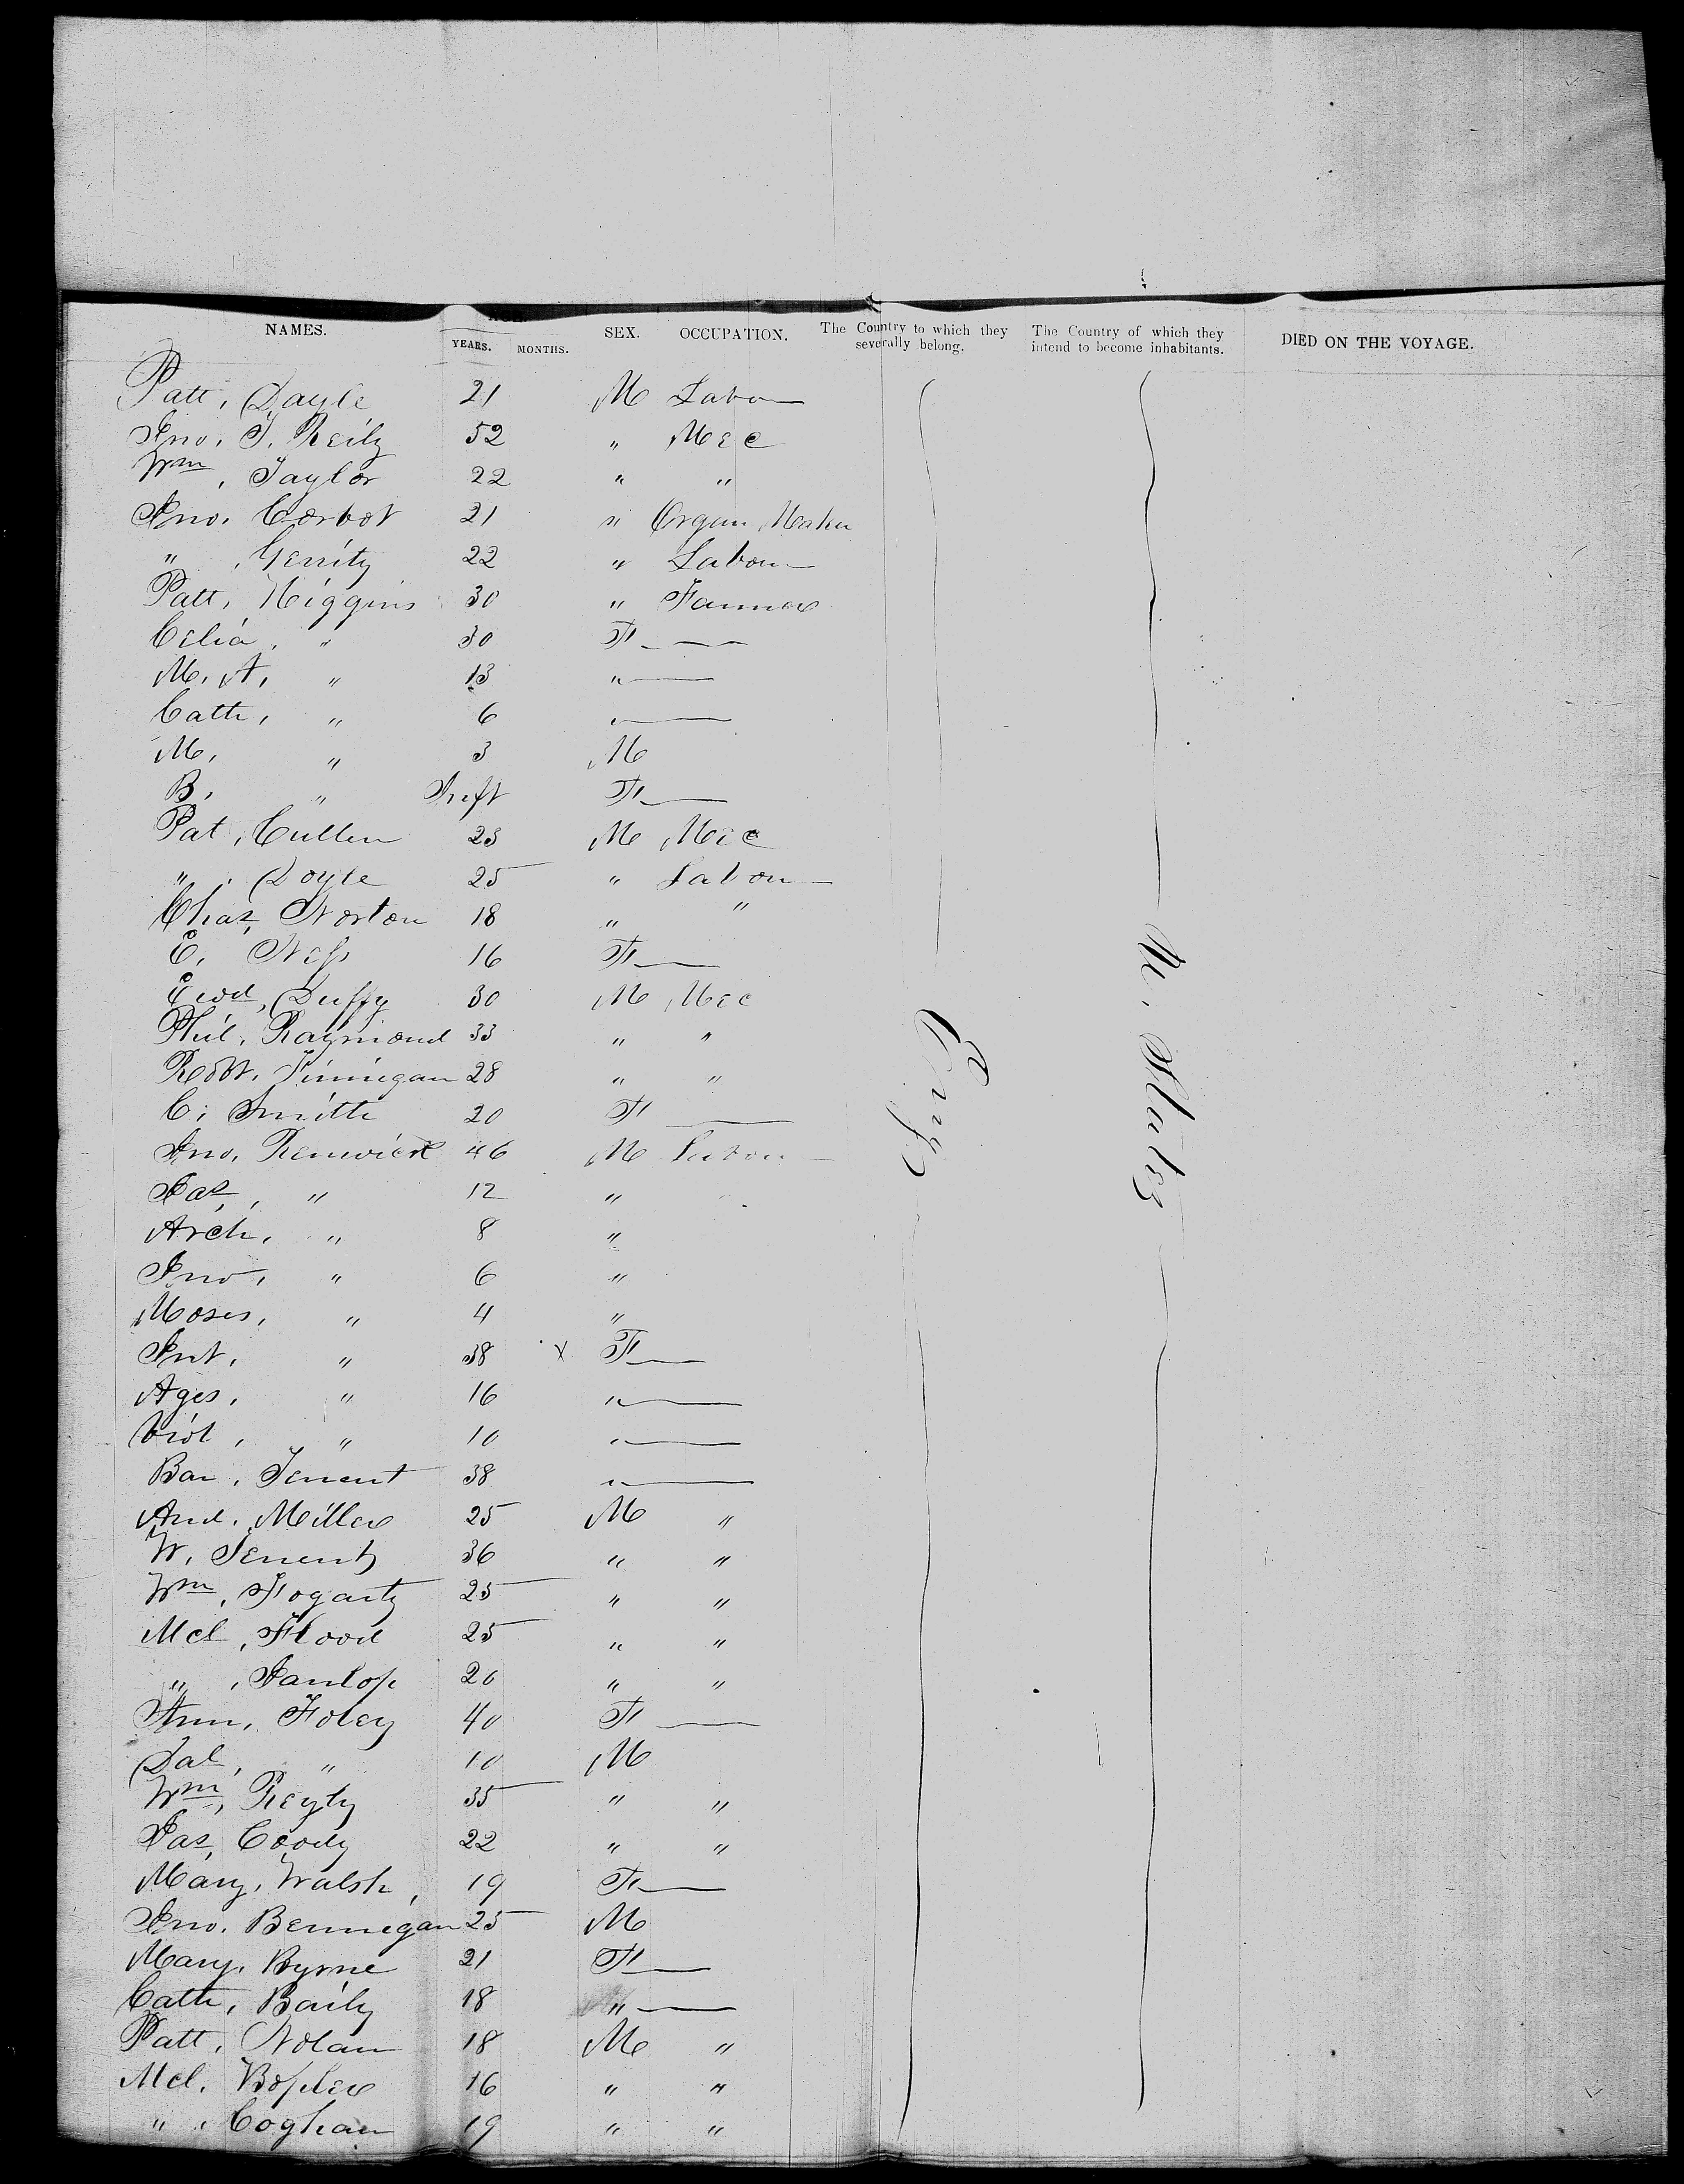 AGE.
NAMES. YEARS. MONTHS. SEX. OCCUPATION. The Country to which they severally belong. The Country of which they intend to become inhabitants. DIED ON THE VOYAGE.
Patt, Dayle 21 M Labou
Jno, J. Reily 52 " Mec
Wm, Taylor 22 " "
Jno. Corbot 21 " Organ Maker
" , Gerrity 22 " Labou
Patt, Higgins 30 " Farmer
Celia, " 30 F
M. A, " 13 "
Cath, " 6 "
M, " 3 M
B, " Inft F
Pat, Cullen 23 M Mec
" , Doyle 25 " Labou
Chas, Norton 18 " "
E, Ness 16 F
Ewd, Duffy 30 M Mec
Phil, Raymond 33 " "
Robt. Finnigan 28 " "
C, Smith 20 F
Jno, Renwick 46 M Labou
Jas, " 12 "
Arch, " 8 "
Jno, " 6 "
Moses, " 4 "
Jnt, " 38 x F
Ages, " 16 "
Viol, " 10 "
Bar, Tenent 38 "
And. Miller 25 M "
W, Tenent 36 " "
Wm, Fogarty 25 " "
Mcl, Flood 25 " "
" , Danlop 20 " "
Ann, Foley 40 F
Dal, " 10 M
Wm, Reyly 35 " "
Jas, Coody 22 " "
Mary, Walsh, 19 F
Jno. Bennigan 25 M
Mary, Byrne 21 F
Cath, Baily 18 "
Patt, Nolan 18 M "
Mcl, 16 " "
" , Coghan 19 " "
Eng
U. States